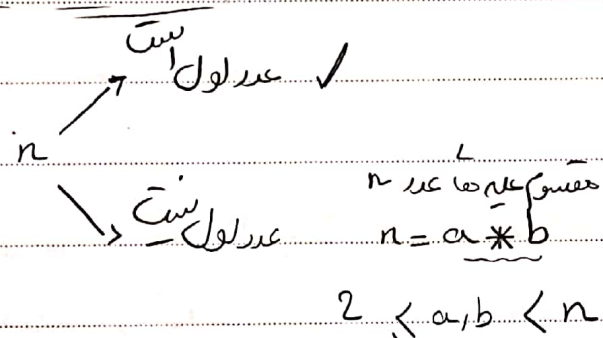 عدد اول است ✓
n
عدد اول نیست
مقسوم علیه های عدد n
n = a * b
2 < a, b < n